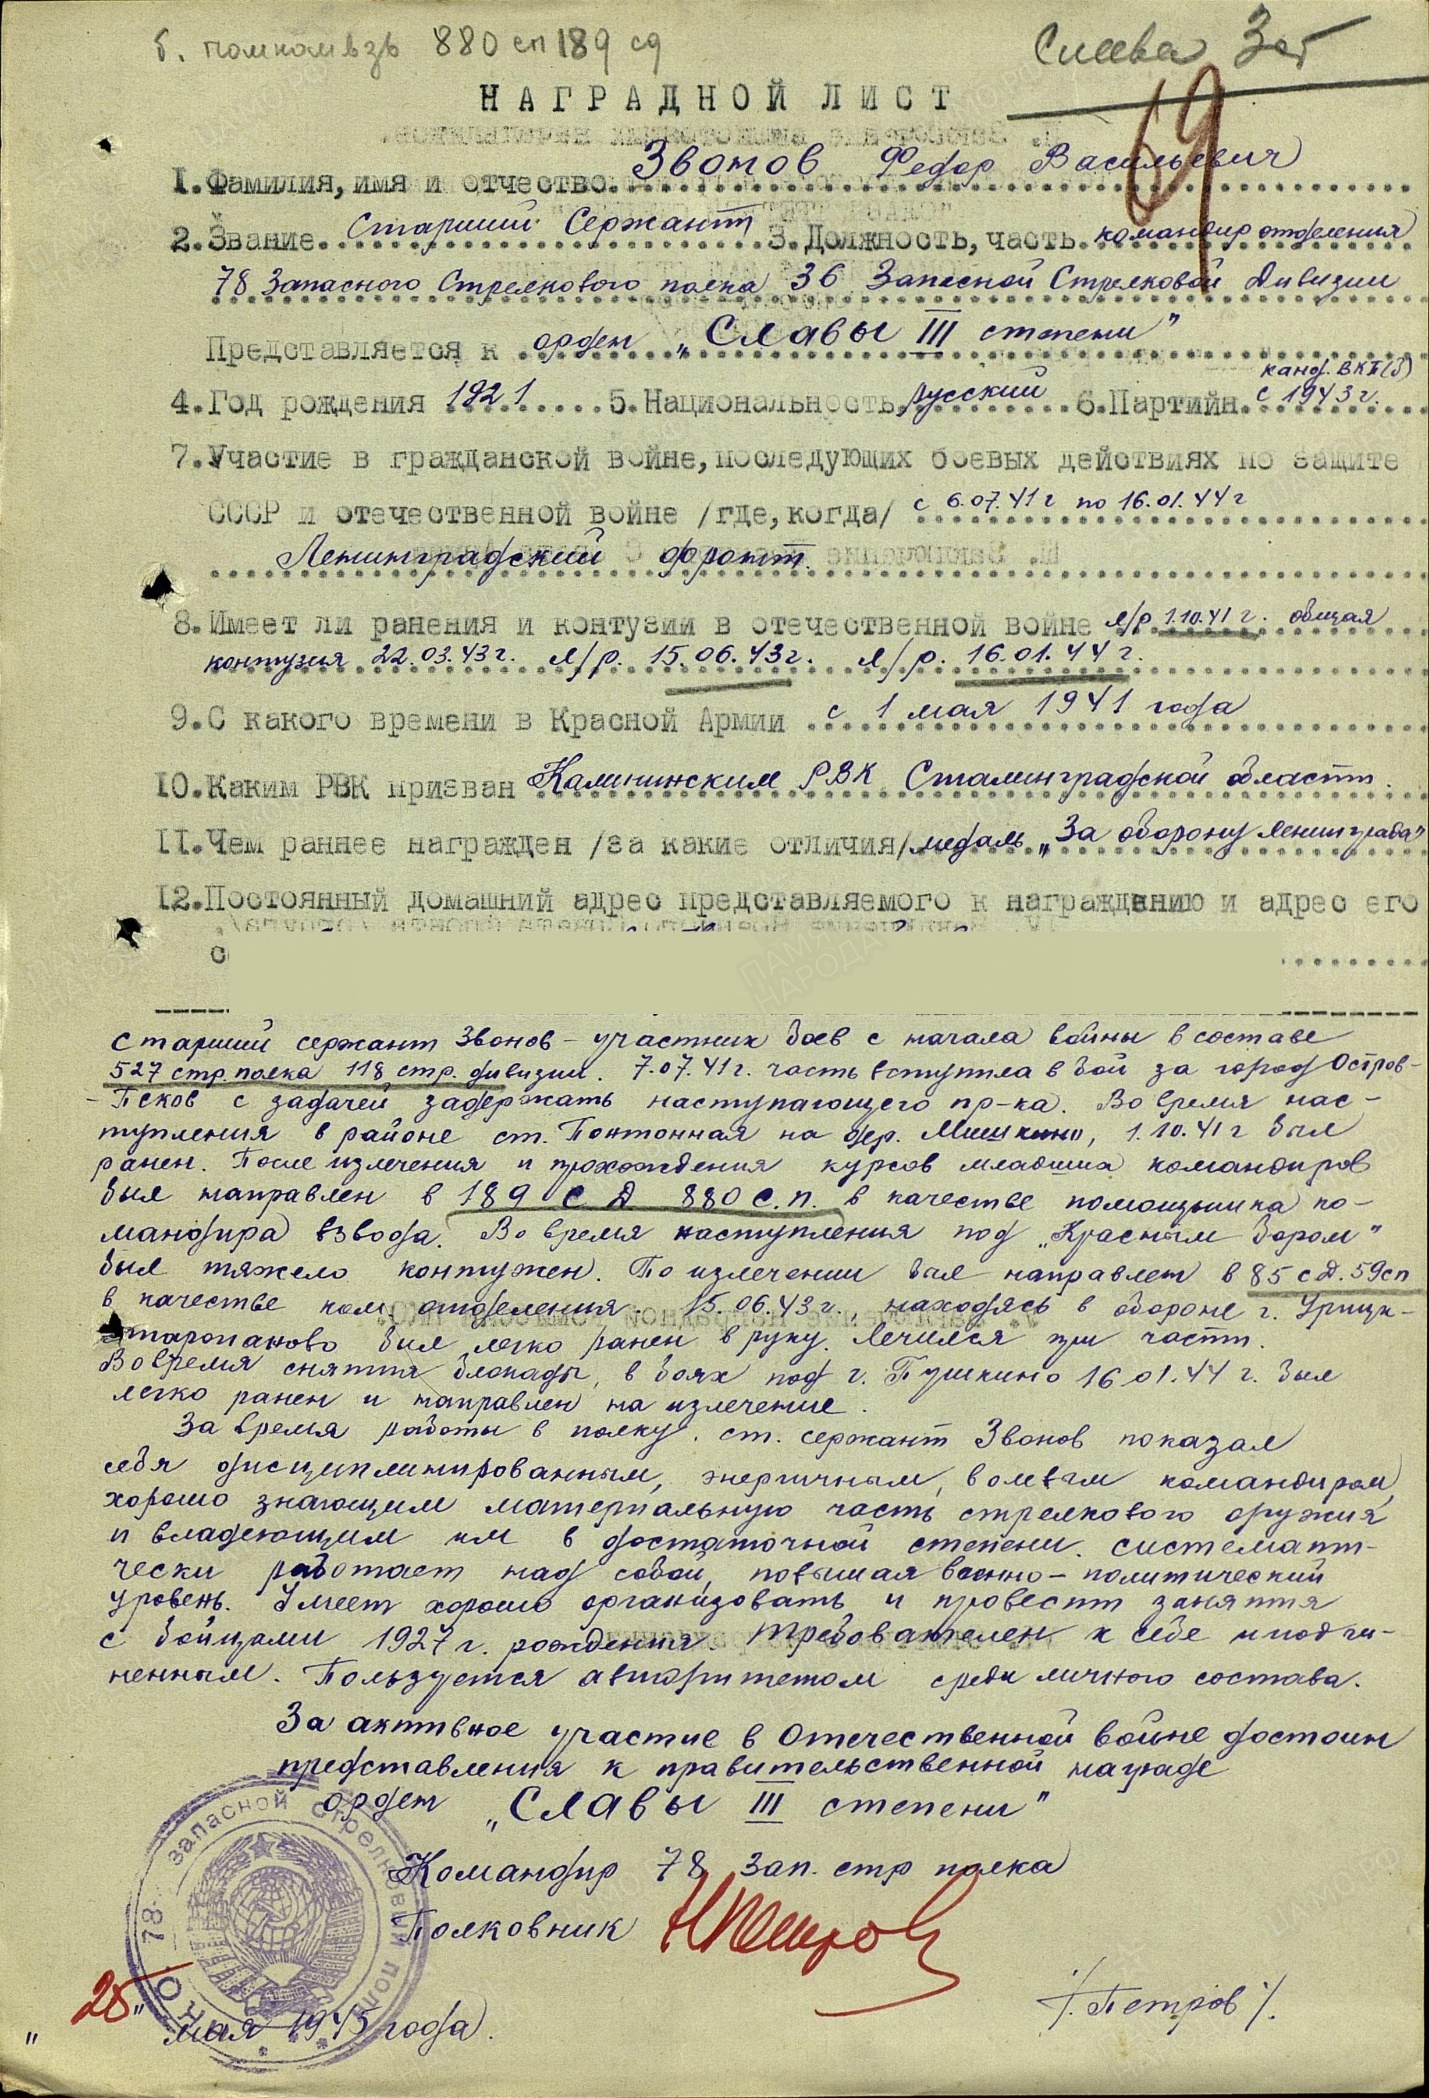 б. помкомвзв 880 сп 189 сд
Слава 3 ст
НАГРАДНОЙ ЛИСТ
69
1. Фамилия, имя и отчество. Звонов Федор Васильевич
2. Звание. Старший Сержант 3. Должность, часть. командир отделения
78 Запасного Стрелкового полка 36 Запасной Стрелковой Дивизии
Представляется к орден „Славы III степени"
4. Год рождения 1921 5. Национальность русский 6. Партийн. канд. ВКП(б) с 1943 г.
7. Участие в гражданской войне, последующих боевых действиях по защите
СССР и отечественной войне /где, когда/ с 6.07.41 г по 16.01.44 г
Ленинградский фронт.
8. Имеет ли ранения и контузии в отечественной войне л/р 1.10.41 г. общая
контузия 22.03.43 г. л/р. 15.06.43 г. л/р. 16.01.44 г.
9. С какого времени в Красной Армии с 1 мая 1941 года
10. Каким РВК призван Калининским РВК Сталинградской области.
11. Чем раннее награжден /за какие отличия/ медаль „За оборону Ленинграда"
12. Постоянный домашний адрес представляемого к награждению и адрес его
с
Старший сержант Звонов – участник боев с начала войны в составе
527 стр. полка 118 стр. дивизии. 7.07.41 г. часть вступила в бой за город Остров-
- Псков с задачей задержать наступающего пр-ка. Во время нас-
тупления в районе ст. Понтонная на дер. Мишкино, 1.10.41 г был
ранен. После излечения и прохождения курсов младших командиров
был направлен в 189 С Д 880 С.П. в качестве помощника ко-
мандира взвода. Во время наступления под „Красным бором"
был тяжело контужен. По излечении был направлен в 85 с.д. 59 сп
в качестве ком. отделения. 15.06.43 г., находясь в обороне г. Урицк-
Старопаново был легко ранен в руку. Лечился при части.
Во время снятия блокады, в боях под г. Пушкино 16.01.44 г. был
легко ранен и направлен на излечение.
За время работы в полку, ст. сержант Звонов показал
себя дисциплинированным, энергичным, волевым командиром,
хорошо знающим материальную часть стрелкового оружия
и владеющим им в достаточной степени. Системати-
чески работает над собой, повышая военно-политический
уровень. Умеет хорошо организовать и провести занятия
с бойцами 1927 г. рождения. Требователен к себе и подчи-
ненным. Пользуется авторитетом среди личного состава.
За активное участие в Отечественной войне достоин
представления к правительственной награде
орден „Славы III степени"
Командир 78 зап. стр полка
Полковник Петров
/. Петров /.
„25" мая 1945 года.
78- запасной стрелковый полк
НКО